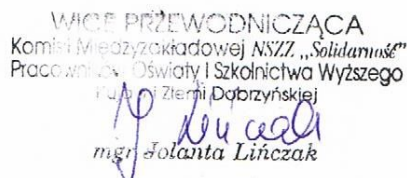 WICE PRZEWODNICZĄCA
Komisji Międzyzakładowej NSZZ „Solidarność”
Pracowników Oświaty i Szkolnictwa Wyższego
Ziemi Dobrzyńskiej
mgr Jolanta Lińczak